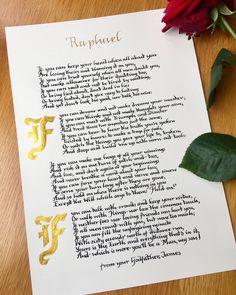 Raphael
If you can keep your head when all about you
Are losing theirs and blaming it on you,
If you can trust yourself when all men doubt you,
But make allowance for their doubting too;
If you can wait and not be tired by waiting,
Or being lied about, don't deal in lies,
Or being hated, don't give way to hating,
And yet don't look too good, nor talk too wise:
If you can dream and not make dreams your master;
If you can think and not make thoughts your aim;
If you can meet with Triumph and Disaster
And treat those two impostors just the same;
If you can bear to hear the truth you've spoken
Twisted by knaves to make a trap for fools,
Or watch the things you gave your life to, broken,
And stoop and build 'em up with worn-out tools:
If you can make one heap of all your winnings
And risk it on one turn of pitch-and-toss,
And lose, and start again at your beginnings
And never breathe a word about your loss;
If you can force your heart and nerve and sinew
To serve your turn long after they are gone,
And so hold on when there is nothing in you
Except the Will which says to them: 'Hold on!'
If you can talk with crowds and keep your virtue,
Or walk with Kings nor lose the common touch,
If neither foes nor loving friends can hurt you,
If all men count with you, but none too much;
If you can fill the unforgiving minute
With sixty seconds' worth of distance run,
Yours is the Earth and everything that's in it,
And which is more you'll be a Man, my son!
from your Godfather, James